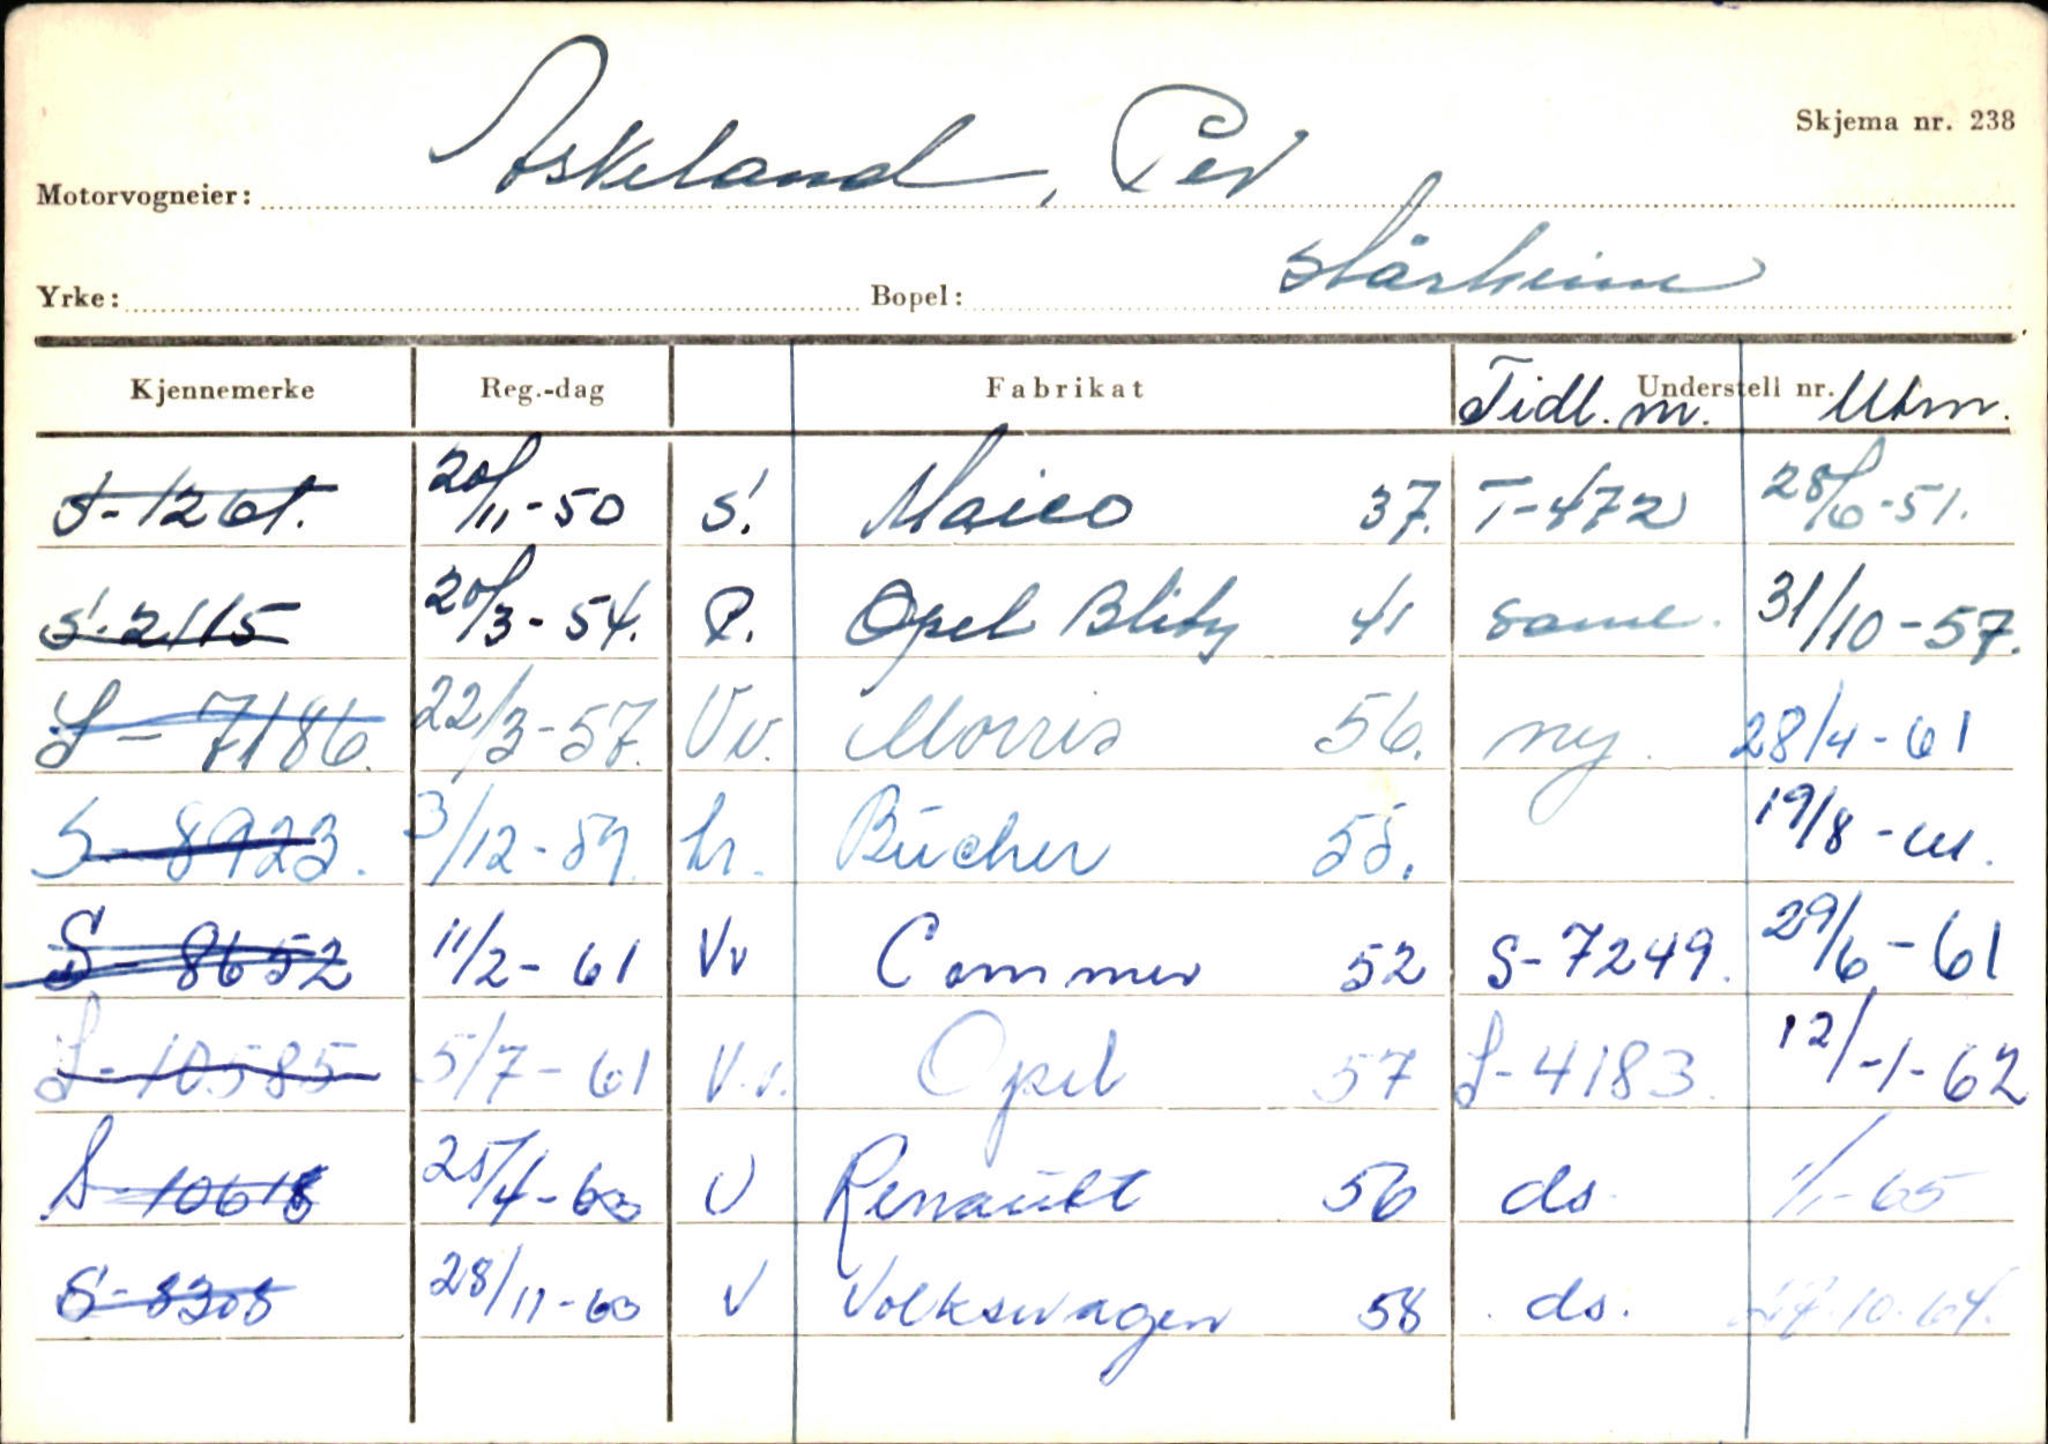 Skjema nr. 238
Motorvogneier: Askeland, Per
Yrke: Bopel: Stårheim
Kjennemerke Reg.-dag Fabrikat Tidl. m. Understell nr. Utm.
S-1261. 20/11-50 S. Maico 37. T-472 28/6-51.
S-2115 20/3-54. P. Opel Blitz 41 same. 31/10-57.
S-7186. 22/3-57. Vv. Morris 56. ny. 28/4-61
S-8923. 3/12-57. Lr. Bücher 55. 19/8-61.
S-8652 11/2-61 Vv Commer 52 S-7249. 29/6-61
S-10585 5/7-61 V.v. Opel 57 S-4183. 12/-1-62
S-10618 25/4-63 V Renault 56 ds 1/1-65
S-8308 28/11-63 V Volkswagen 58 ds. 10-64.